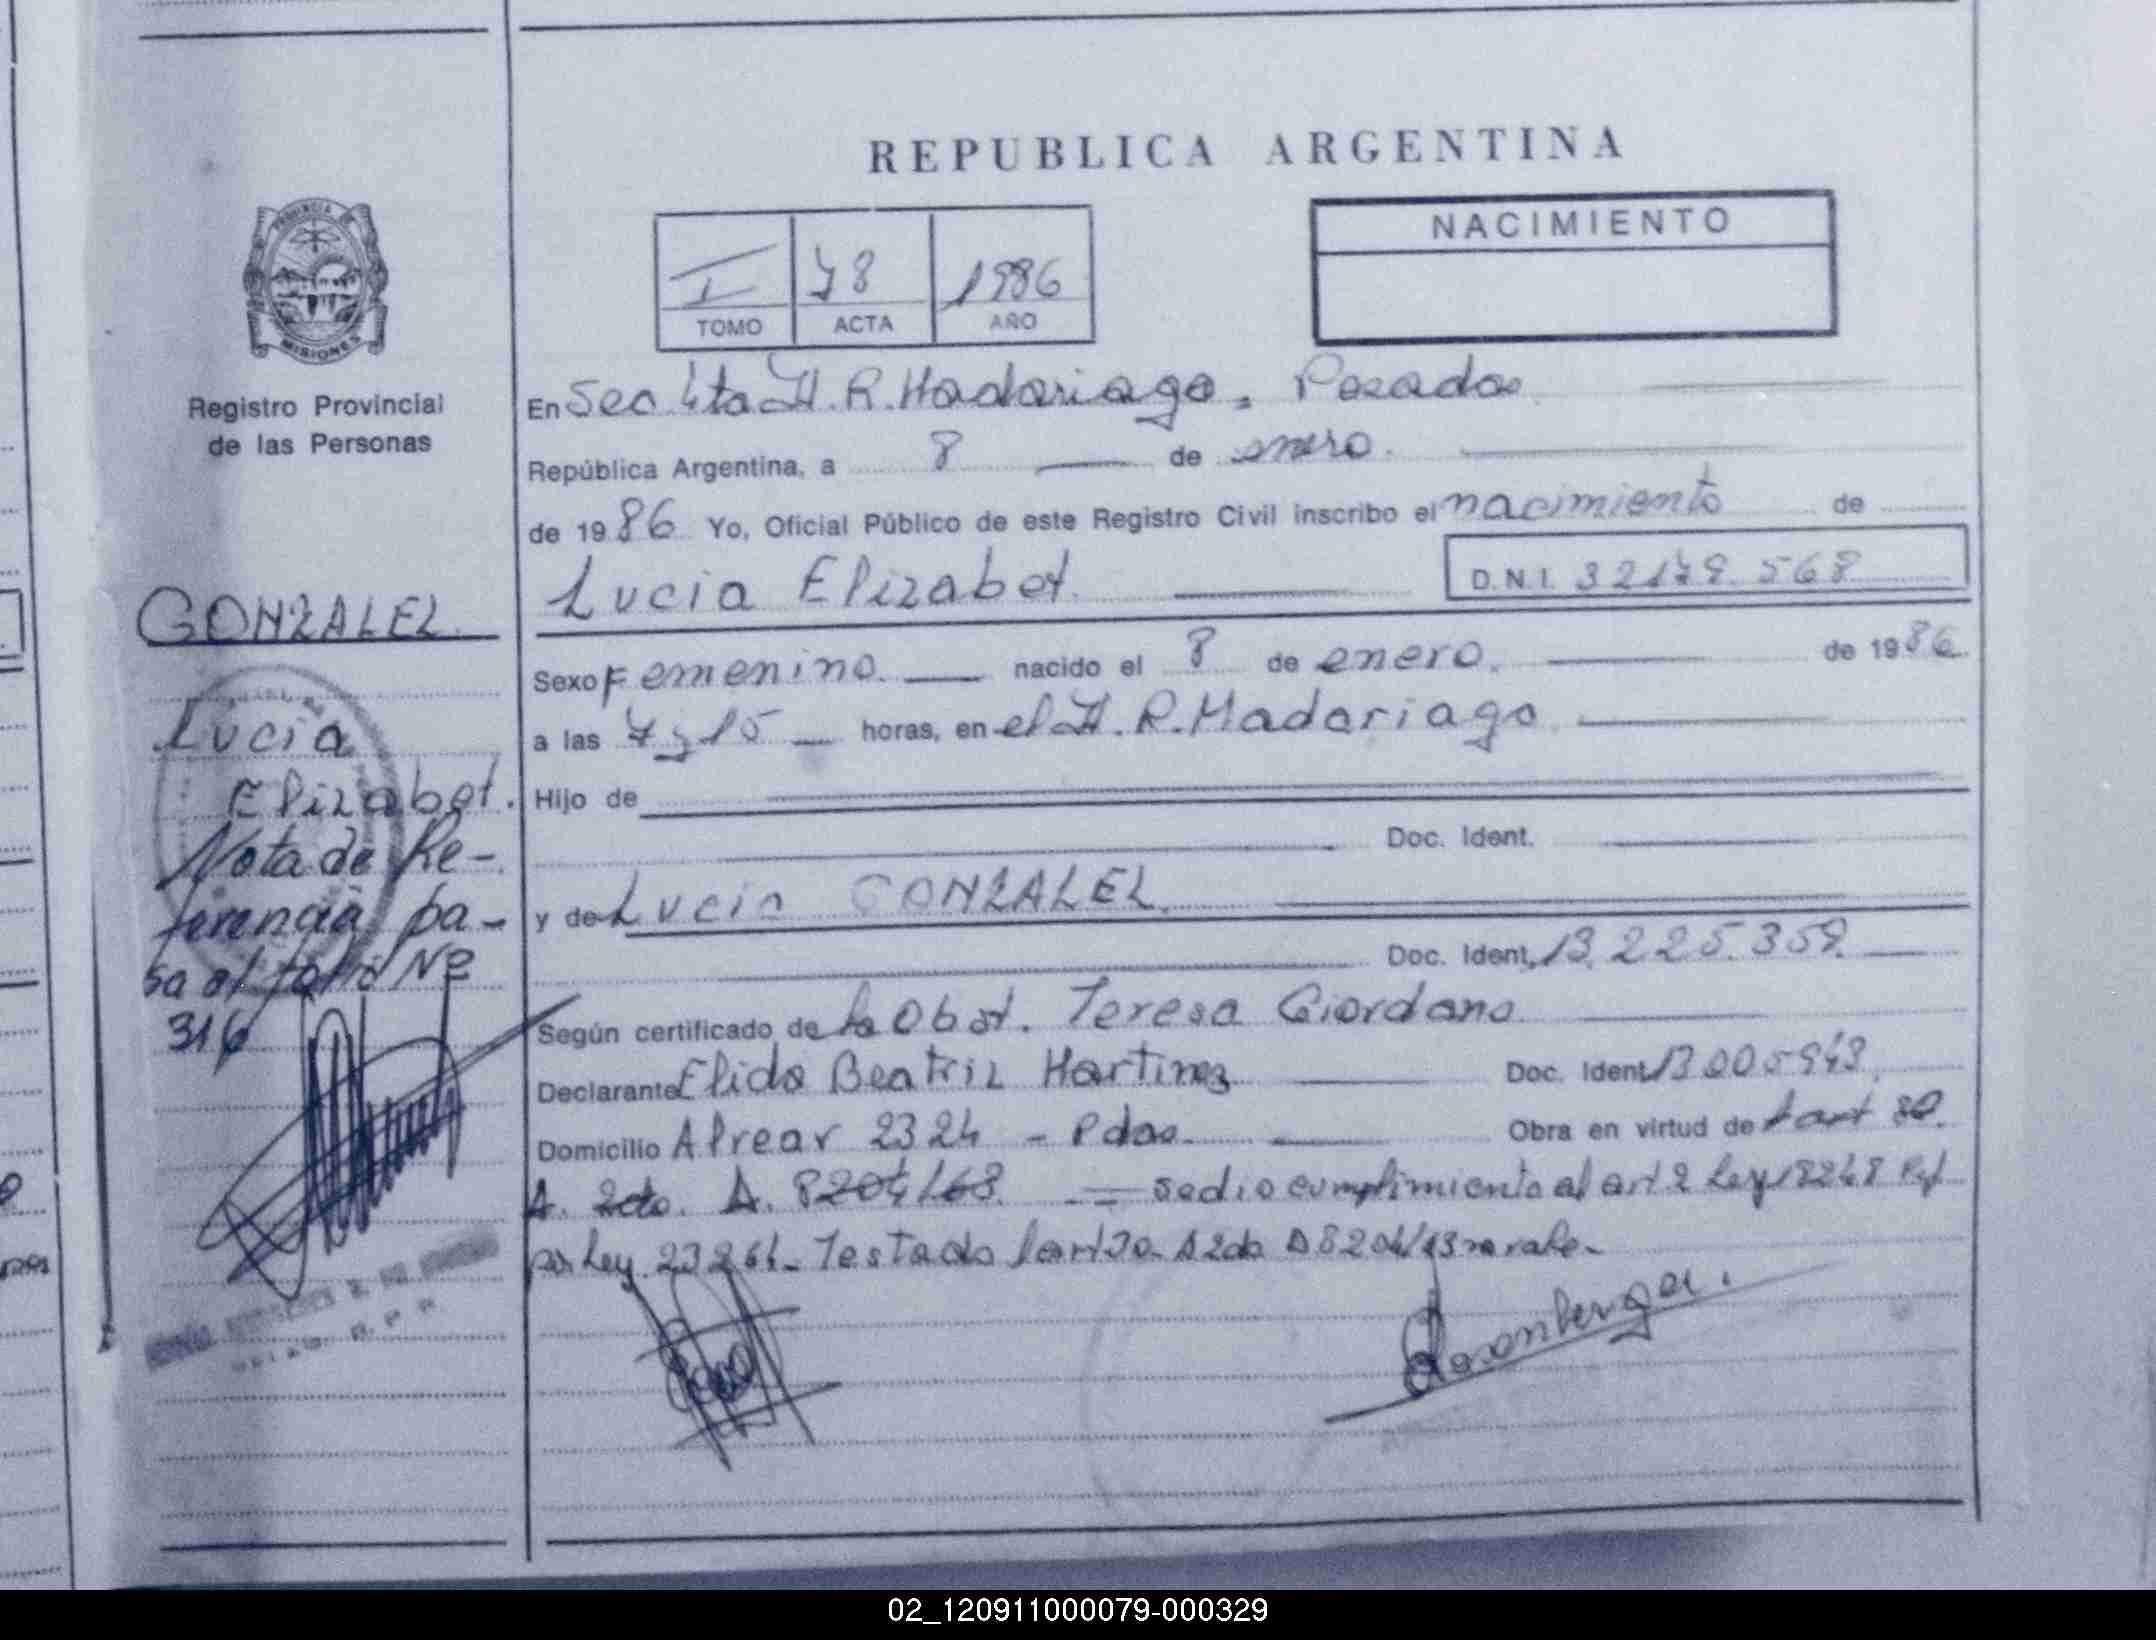 REPUBLICA ARGENTINA
PROVINCIA DE
MISIONES
Registro Provincial
de las Personas
I 78 1986
TOMO ACTA AÑO
NACIMIENTO
En Sec 4ta H. R. Madariaga. Posadas
República Argentina, a 8 de enero.
de 1986 Yo, Oficial Público de este Registro Civil inscribo el nacimiento de
Lucia Elizabet. D.N.I. 32179.568
Sexo Femenino. nacido el 8 de enero. de 1986.
a las 7 y 15 horas, en el H. R. Madariaga
Hijo de
Doc. Ident.
y de Lucia GONZALEZ.
Doc. Ident. 13.225.359.
Según certificado de la Obst. Teresa Giordano
Declarante Elida Beatriz Martinez Doc. Ident. 13005943.
Domicilio Alvear 2324 - Pdas. Obra en virtud de
A. 2do. A. 8204/63. se dio cumplimiento al art 2 Ley 18248
por Ley. 23264. Testado A 2do D 8204/63 no vale.
GONZALEZ.
Lucia
Elizabet.
Nota de Re-
ferencia pa-
sa al folio Nº
316
02_120911000079-000329